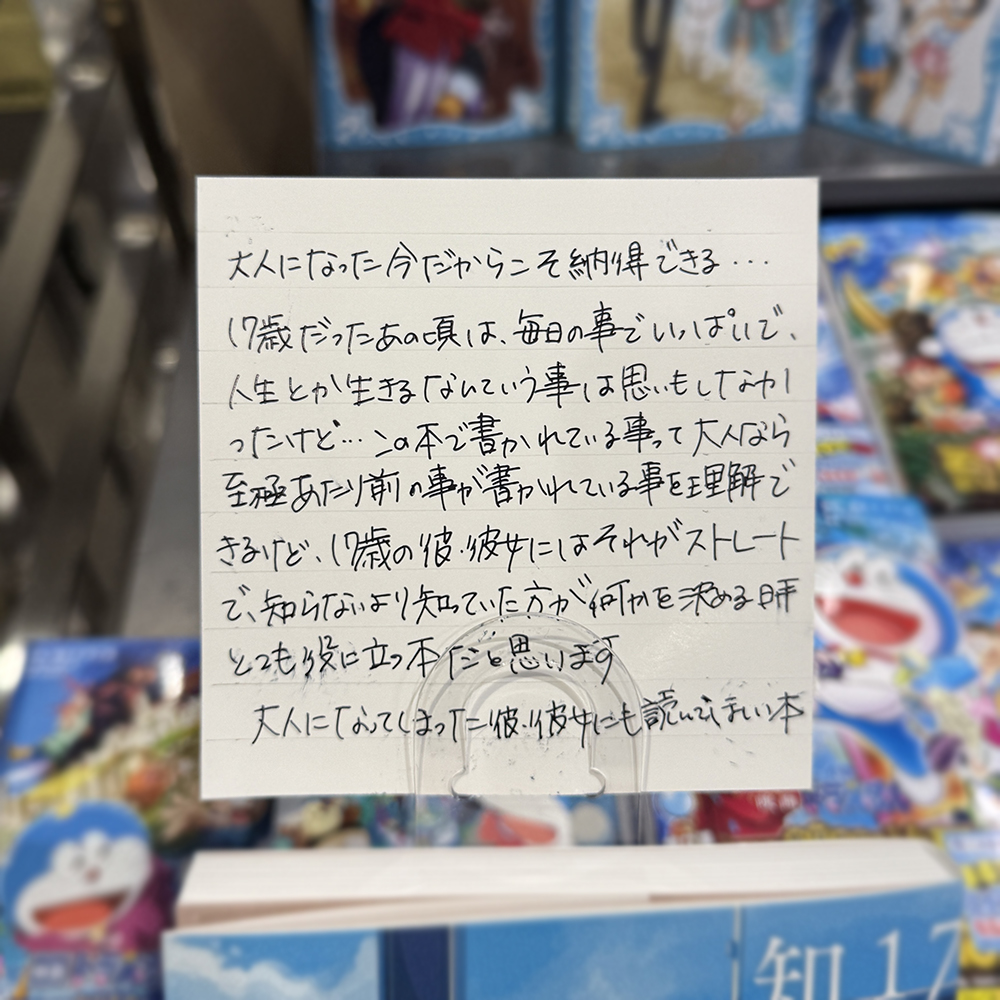 大人になった今だからこそ納得できる...
17歳だったあの頃は、毎日の事でいっぱいで、
人生とか生きるなんていう事は思いもしなかし
ったけど...この本で書かれている事って大人なら
至極あたり前の事が書かれている事を理解で
きるけど、17歳の彼・彼女にはそれがストレート
で、知らないより知っていた方が何かを決める時
とても役に立つ本だと思います
大人になってしまった彼・彼女にも読んでほしい本
知 17